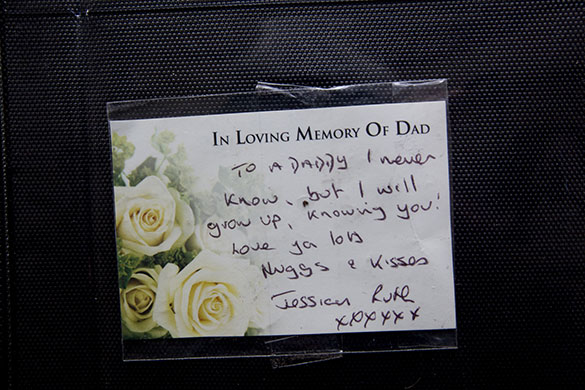 IN LOVING MEMORY OF DAD
TO A DADDY I never
Know, but I will
grow up, knowing you!
Love ya lots
Huggs & Kisses
Jessica Ruth
xxxxxx